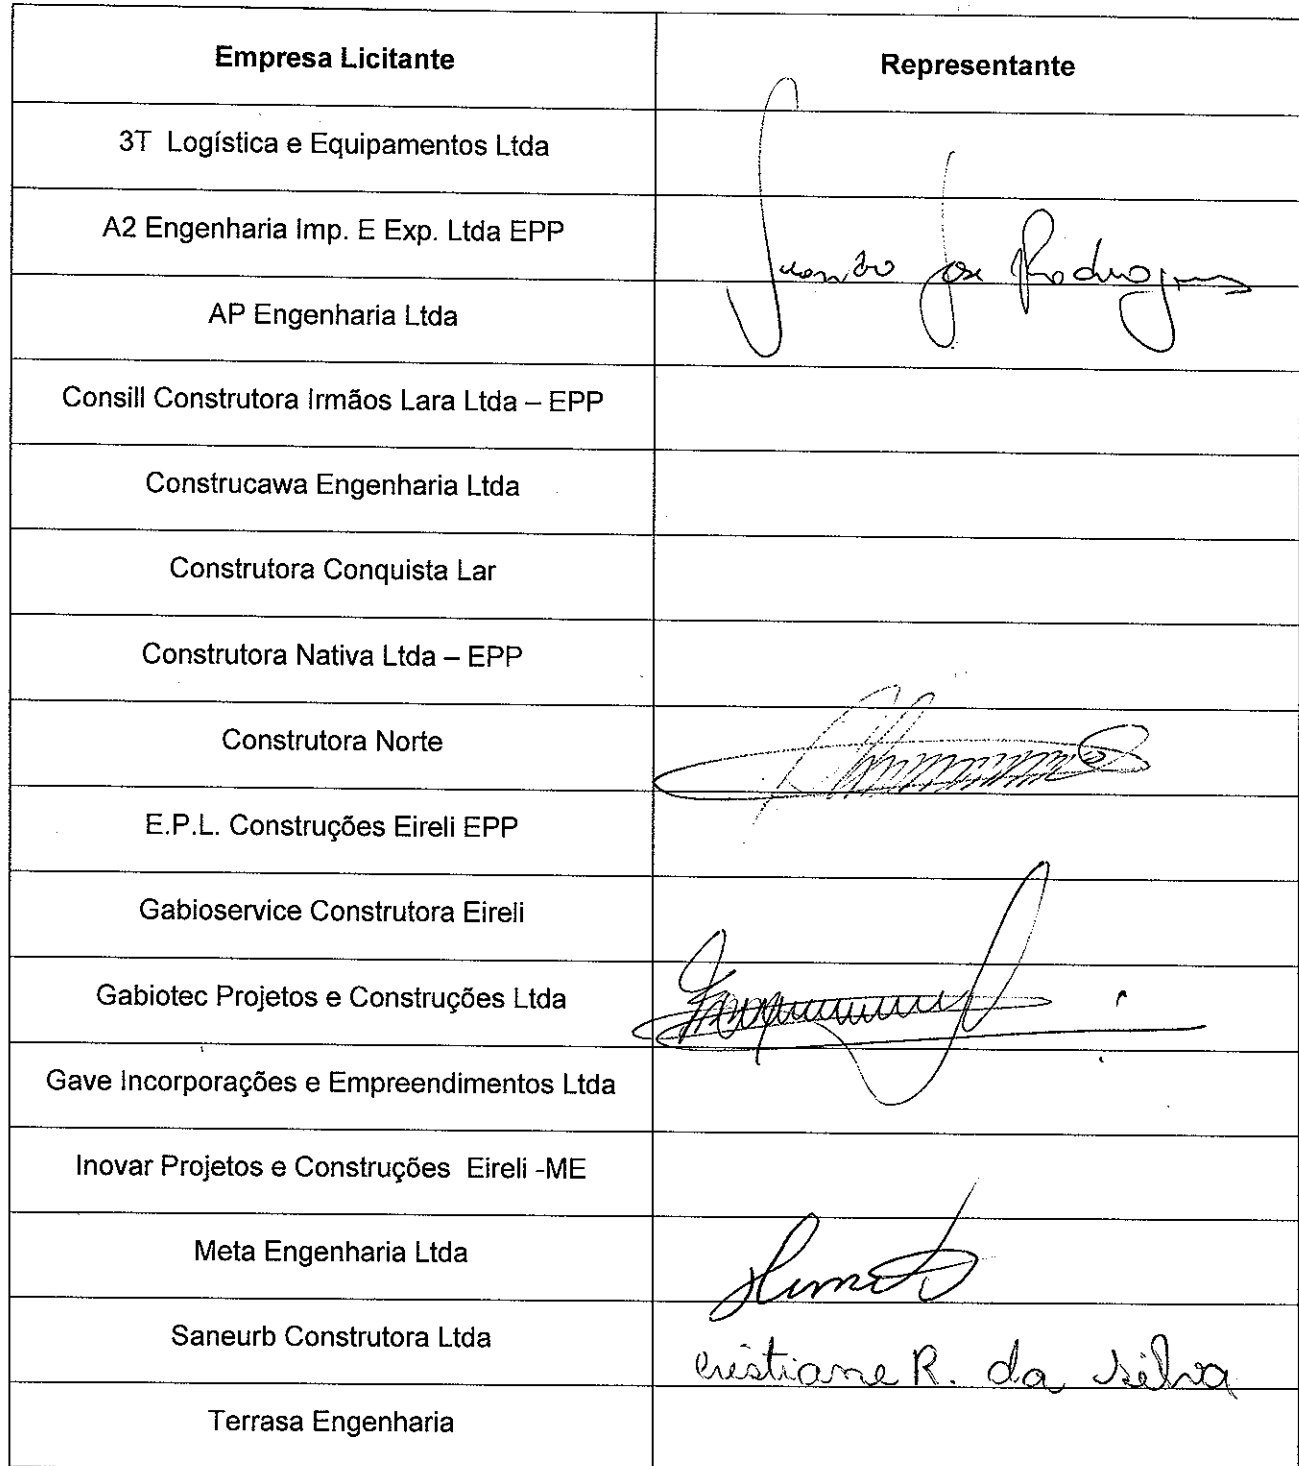 Empresa Licitante Representante
3T Logística e Equipamentos Ltda
A2 Engenharia Imp. E Exp. Ltda EPP
Jose Rodrigues
AP Engenharia Ltda
Consill Construtora Irmãos Lara Ltda – EPP
Construcawa Engenharia Ltda
Construtora Conquista Lar
Construtora Nativa Ltda – EPP
Construtora Norte
E.P.L. Construções Eireli EPP
Gabioservice Construtora Eireli
Gabiotec Projetos e Construções Ltda
Gave Incorporações e Empreendimentos Ltda
Inovar Projetos e Construções Eireli -ME
Meta Engenharia Ltda
Saneurb Construtora Ltda
Cristiane R. da Silva
Terrasa Engenharia